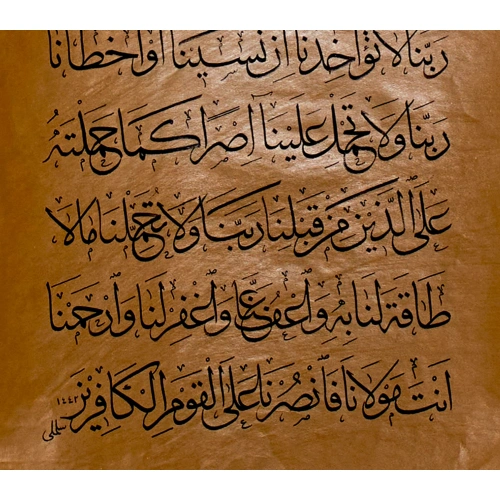 رَبَّنَا لَا تُؤَاخِذْنَا إِنْ نَسِينَا أَوْ أَخْطَأْنَا
رَبَّنَا وَلَا تَحْمِلْ عَلَيْنَا إِصْرًا كَمَا حَمَلْتَهُ
عَلَى الَّذِينَ مِنْ قَبْلِنَا رَبَّنَا وَلَا تُحَمِّلْنَا مَا لَا
طَاقَةَ لَنَا بِهِ وَاعْفُ عَنَّا وَاغْفِرْ لَنَا وَارْحَمْنَا
أَنْتَ مَوْلَانَا فَانْصُرْنَا عَلَى الْقَوْمِ الْكَافِرِينَ ١٤٤٢